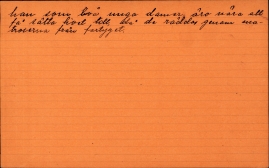 han som två unga damer, äro våra att
få sätta livet till, då de räddas genom ma-
troserna från fartyget.